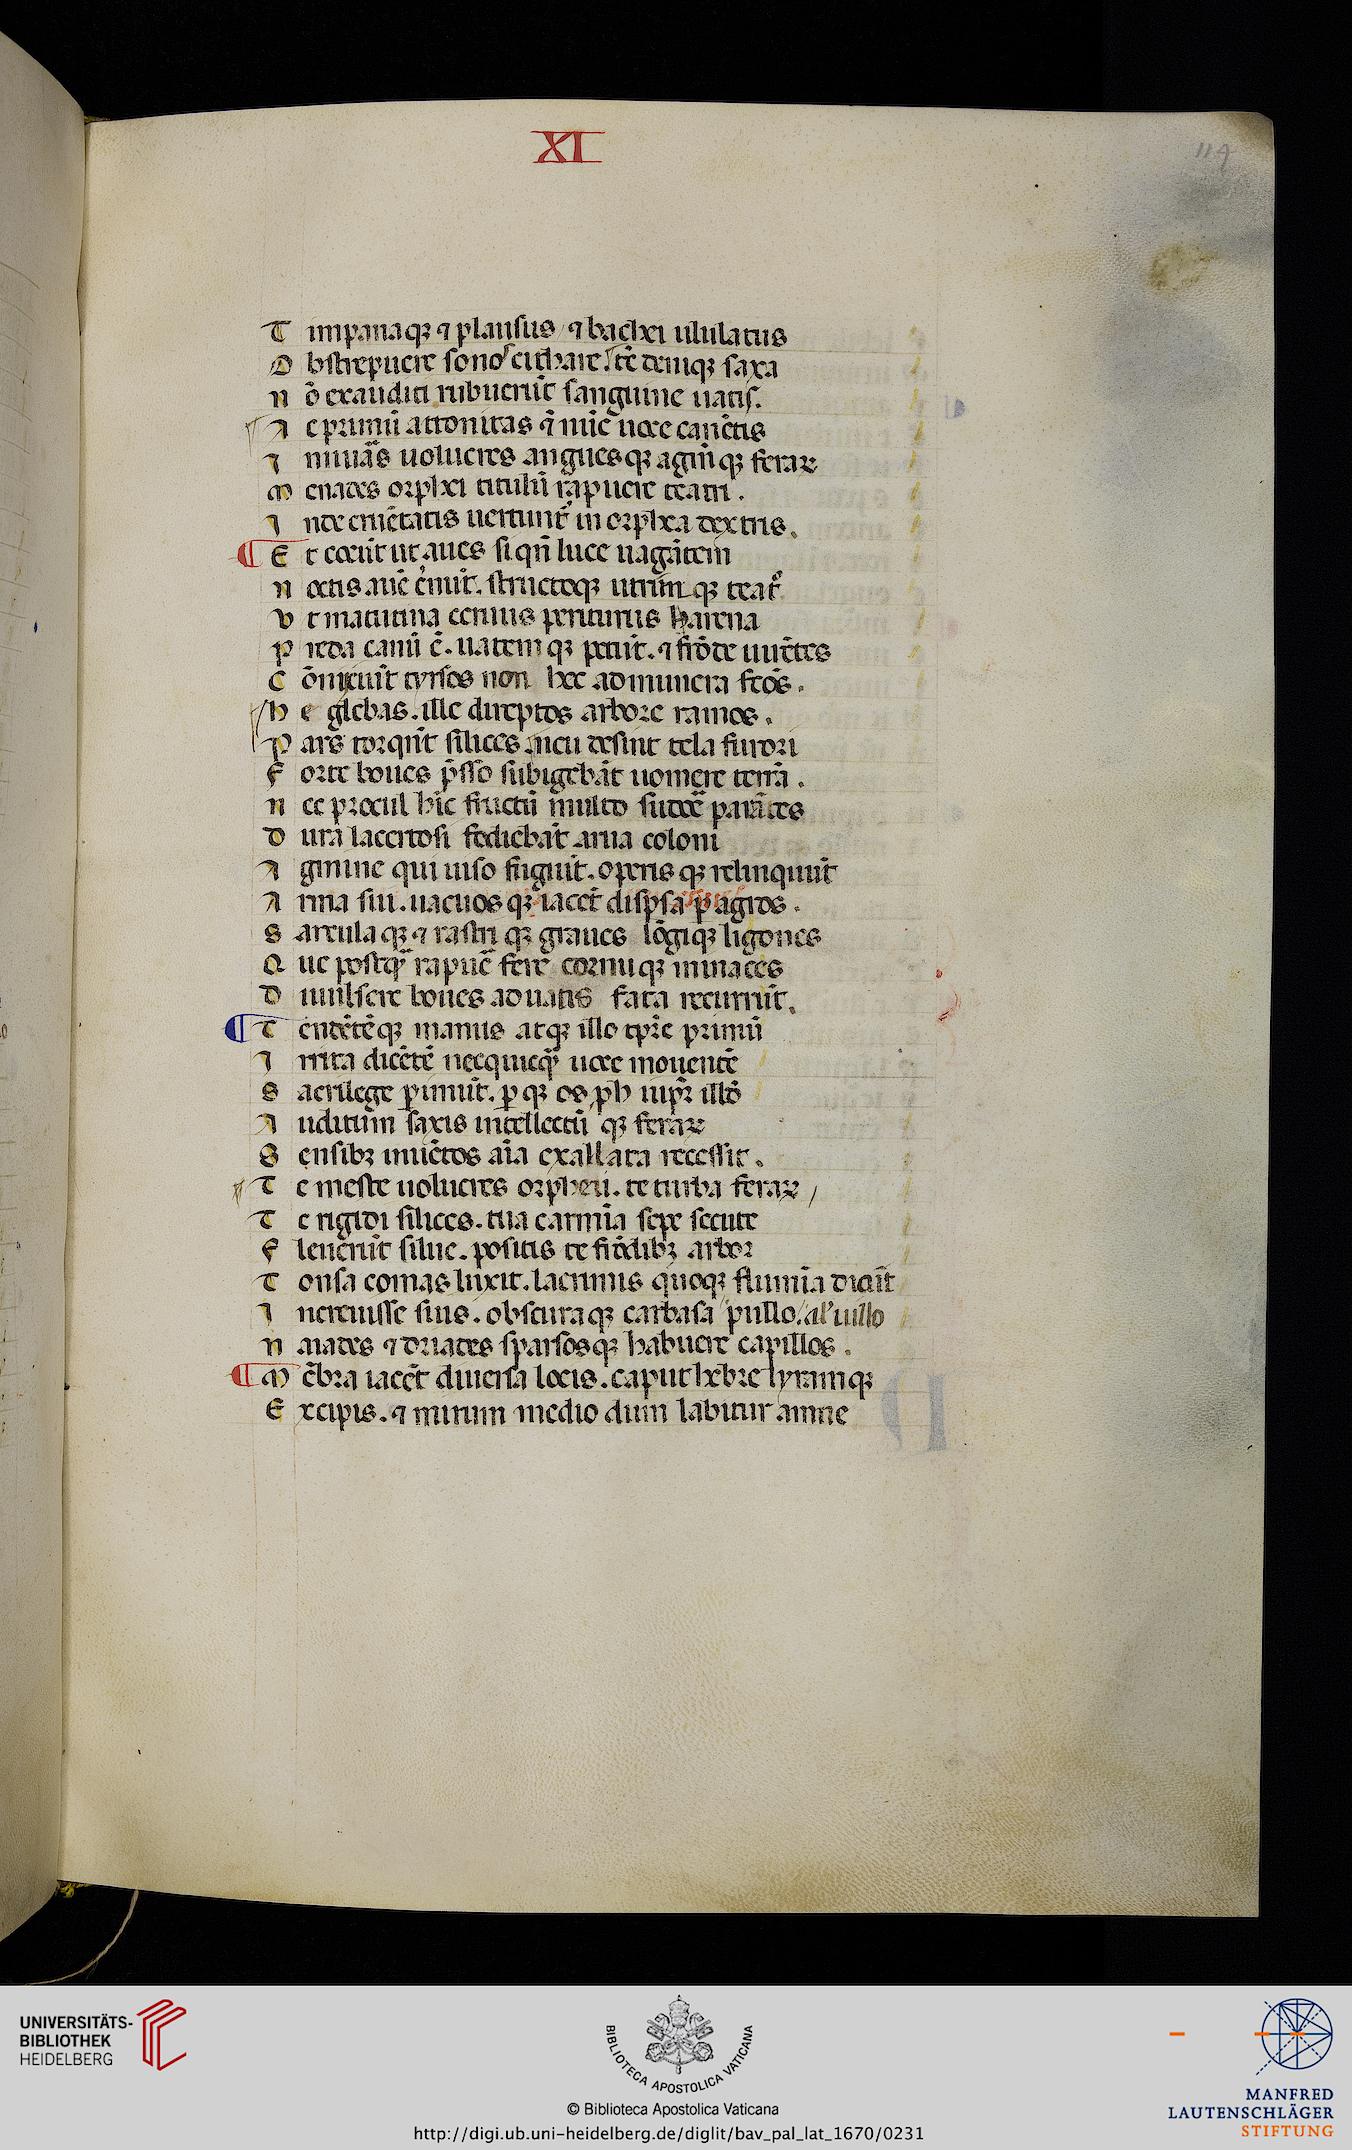 XI
114
T impanaqꝫ ⁊ plausus ⁊ bachei ululatus
O bstrepuere sono cithare. tc̄ deniqꝫ saxa
N ō exauditi rubuerūt sanguine uatis.
A c primū attonitas ⁊ nūc uoce canētis
I nnuās uolucres anguesqꝫ agmīqꝫ feraꝝ
M enades orphei titulū rapuere teatri.
I nde cruētatis uertunt̄ in orphea dextris.
E t coeūt ut aues si qn̄ luce uagātem
N octis auē c̄nūt. structoqꝫ utrimqꝫ teat̄
V t matutina ceruus periturus harena
P reda canū ē. uatemqꝫ petūt. ⁊ frōde uirētes
C ōiciūt tyrsos non hec ad munera fc̄os.
H e glebas. ille direptos arbore ramos.
P ars torquēt silices. neu desint tela furori
F orte boues p̄sso subigebāt uomere terrā.
N ec procul hīc fructū multo sudore parātes
D ura lacertosi fodiebāt arua coloni
A gmine qui uiso fugiūt. operisqꝫ relinquūt
A rma sui. uacuosqꝫ iacēt dispsa ꝑ agros.
S arculaqꝫ ⁊ rastriqꝫ graues lōgiqꝫ ligones
Q ue postqͣ rapuē fere cornuqꝫ minaces
D iuulsere boues ad uatis fata recurrūt.
T endētēqꝫ manus atqꝫ illo tp̄re primū
I rrita dicētē necquicqͣ uoce mouentē
S acrilege ꝑimūt. ꝑqꝫ os ꝓh iupr̄ illd̄
A uditum saxis intellectūqꝫ feraꝝ
S ensibꝫ in uētos aīa exallata recessit.
T e meste uolucres orpheu. te turba feraꝝ
T e rigidi silices. tua carmīa sepe secute
F leuerūt silue. positis te frōdibꝫ arbor
T onsa comas luxit. lacrimis quoqꝫ flumīa dicūt
I ncreuisse suis. obscuraqꝫ carbasa pullo. al' uillo
N aiades ⁊ driades sparsosqꝫ habuere capillos.
M ēbra iacēt diuersa locis. caput hebre lyramqꝫ
E xcipis. ⁊ mirum medio dum labitur amne
UNIVERSITÄTS-
BIBLIOTHEK
HEIDELBERG
BIBLIOTECA APOSTOLICA VATICANA
© Biblioteca Apostolica Vaticana
http://digi.ub.uni-heidelberg.de/diglit/bav_pal_lat_1670/0231
MANFRED
LAUTENSCHLÄGER
STIFTUNG